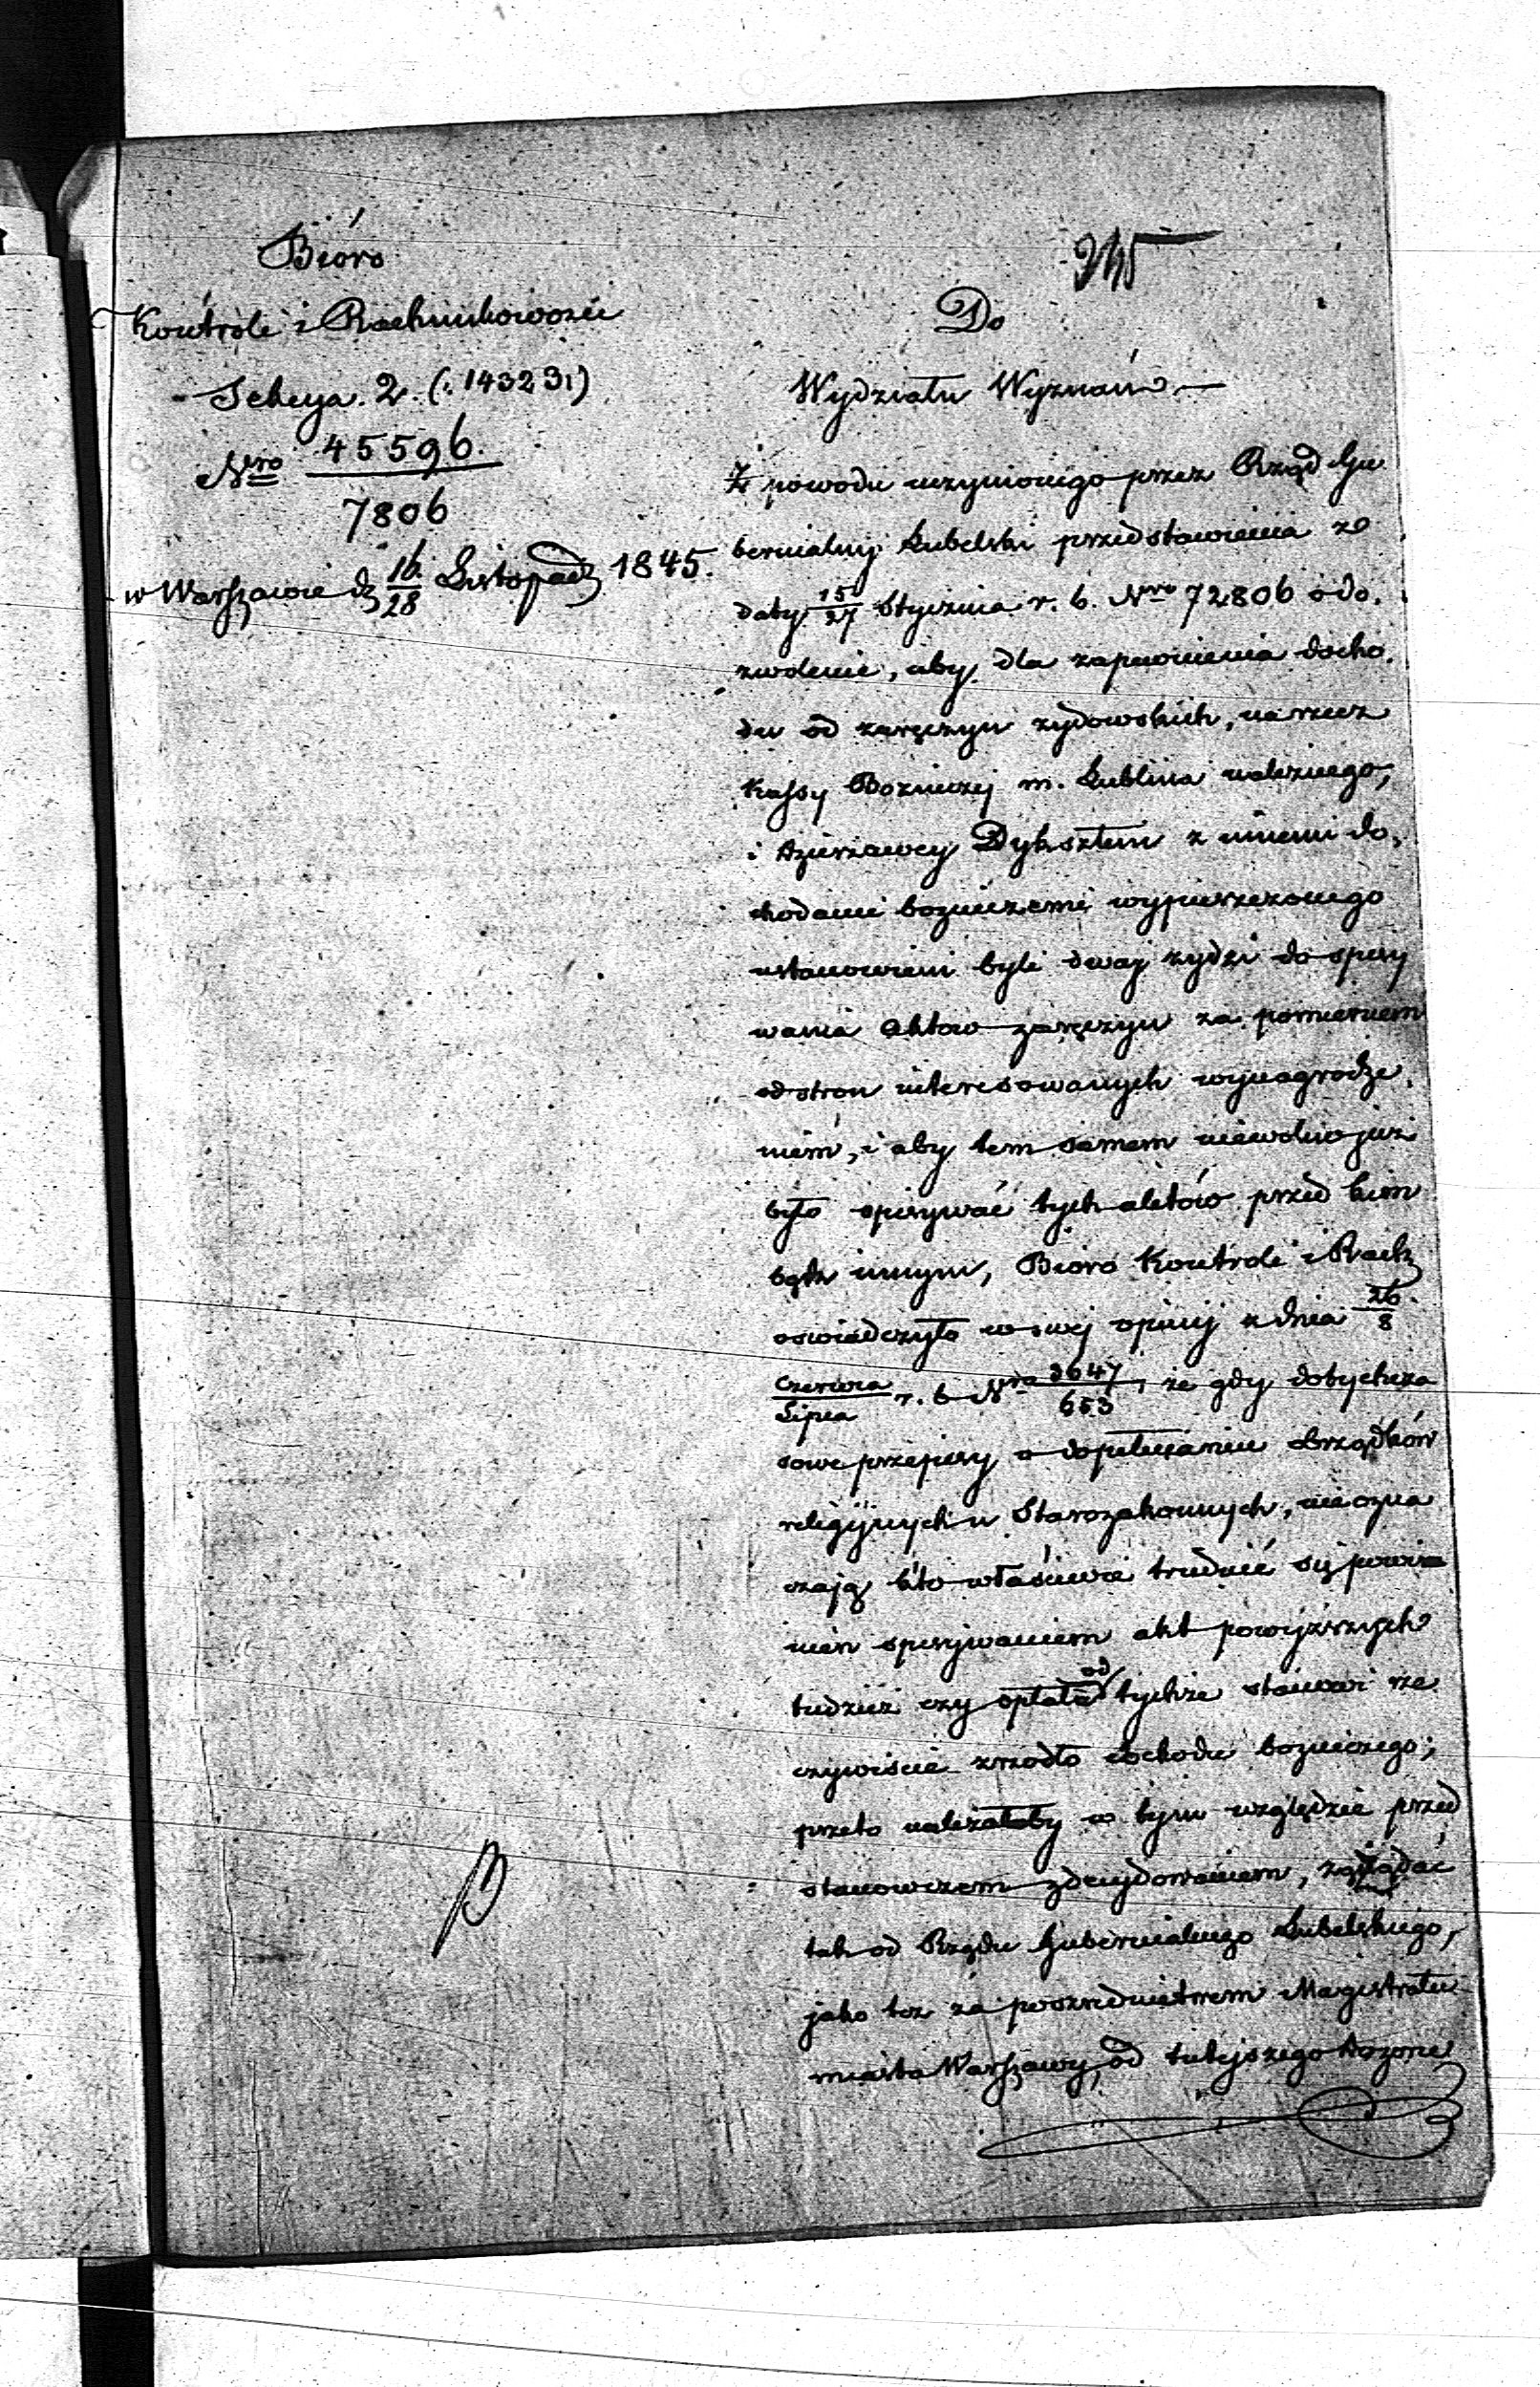 Bióro
Kontroli i Rachunkowości
Sekcya. 2. (:143231)
Nro 45596.
7806
w Warszawie d 16/28 Listopada 1845.
245
Do
Wydziału Wyznań
Z powodu uczynionego przez Rząd Gu
bernialny Lubelski przedstawienia z
daty 15/27 Stycznia r. b. Nro 72806 o do.
zwolenie, aby dla zapewnienia docho.
du od zaręczyn żydowskich, na rzecz
Kassy Bożniczej m. Lublina należnego,
i dzierżawcy Dyksztein z innemi do.
chodami bożniczemi wypuszczonego
ustanowieni byli dwaj żydzi do spisy
wania aktow zaręczyn za pomiernem
od stron interesowanych wynagrodze.
niem, i aby tem samem niewolno już
było spisywać tych aktów przed kim
bądz innym, Bióro Kontroli i Rach
oswiadczyło w swej opinij z dnia 26/8
Czerwca/Lipca r. b. Nro 3647/653, że gdy dotychcza
sowe przepisy o dopełnianiu obrządków
religijnych u Starozakonnych, nie ozna
czają kto właściwie trudnić się powi
nien spisywaniem akt powyższych
tudzież czy opłata od tychże stanowi rze
czywiście zrzodło dochodu bożniczego;
przeto należałoby w tym względzie przed
stanowczem zdecydowaniem, zażądać
tak od Rządu Gubernialnego Lubelskiego,
jako też za posrednictwem Magistratu
miasta Warszawy, od tutejszego Dozoru